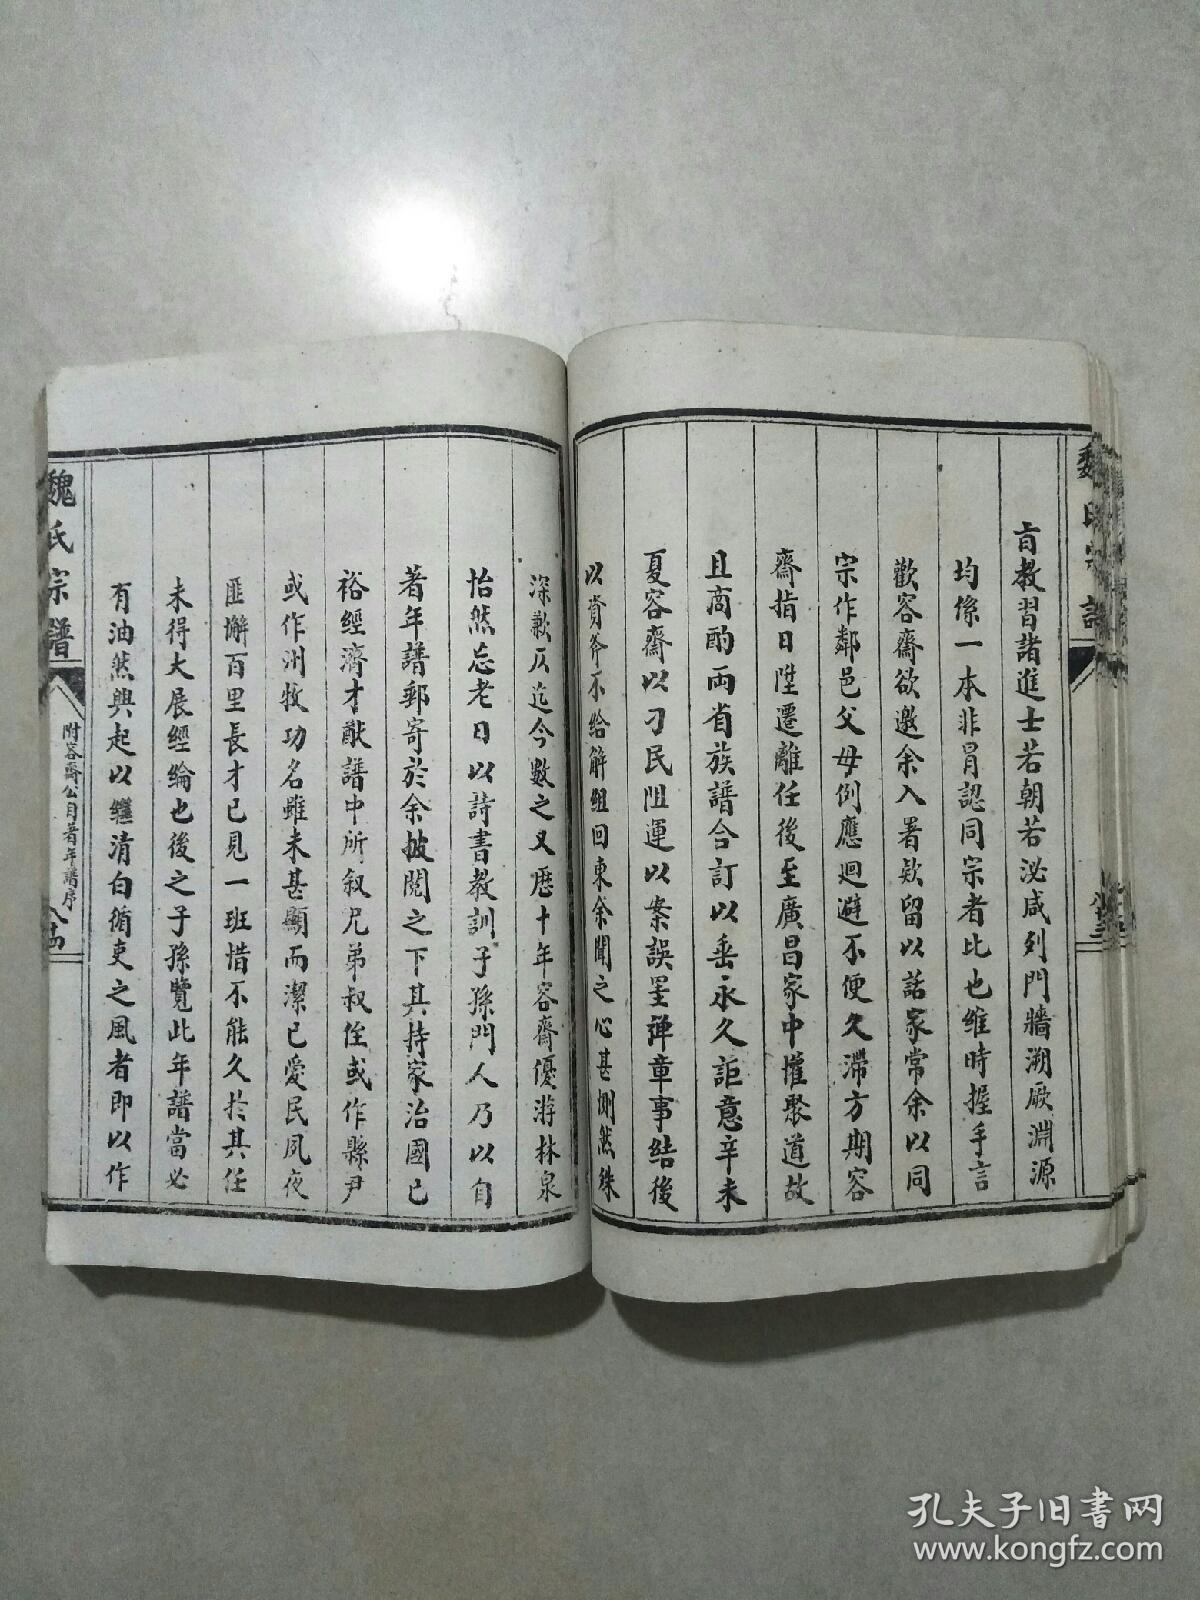 肓教習諸進士若朝若泌咸列門牆溯厥淵源
均係一本非冐認同宗者比也維時握手言
歡容齋欲邀余入署欵留以話家常余以同
宗作鄰邑父母例應迴避不便久滯方期容
齋指日陞遷離任後至廣昌家中懽聚道故
且商酌両省族譜合訂以垂永久詎意辛未
夏容齋以刁民阻運以案誤罣弹章事結後
以資斧不給解組回東余聞之心甚惻然殊
深歉仄迄今數之又歴十年容齋優游林泉
怡然忘老日以詩書教訓子孫門人乃以自
著年譜郵寄於余披閲之下其持家治國已
裕經濟才猷譜中所叙兄弟叔侄或作縣尹
或作州牧功名雖未甚顯而潔已愛民夙夜
匪懈百里長才已見一班惜不能久扵其任
未得大展經綸也後之子孫覽此年譜當必
有油然興起以繼清白循吏之風者即以作
魏氏宗譜
附容齋公自著年譜序
孔夫子旧书网
www.kongfz.com